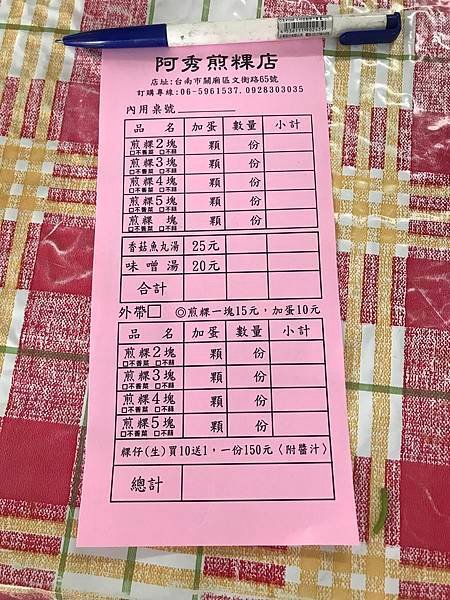 阿秀煎粿店
店址:台南市關廟區文衡路65號
訂購專線:06-5961537.0928303035
內用桌號
品 名 加蛋 數量 小計
煎粿2塊 顆 份
□不香菜 □不蒜
煎粿3塊 顆 份
□不香菜 □不蒜
煎粿4塊 顆 份
□不香菜 □不蒜
煎粿5塊 顆 份
□不香菜 □不蒜
煎粿 塊 顆 份
□不香菜 □不蒜
香菇魚丸湯 25元
味噌湯 20元
合計
外帶□ ◎煎粿一塊15元,加蛋10元
品 名 加蛋 數量 小計
煎粿2塊 顆 份
□不香菜 □不蒜
煎粿3塊 顆 份
□不香菜 □不蒜
煎粿4塊 顆 份
□不香菜 □不蒜
煎粿5塊 顆 份
□不香菜 □不蒜
粿仔(生)買10送1,一份150元〈附醬汁〉
總計